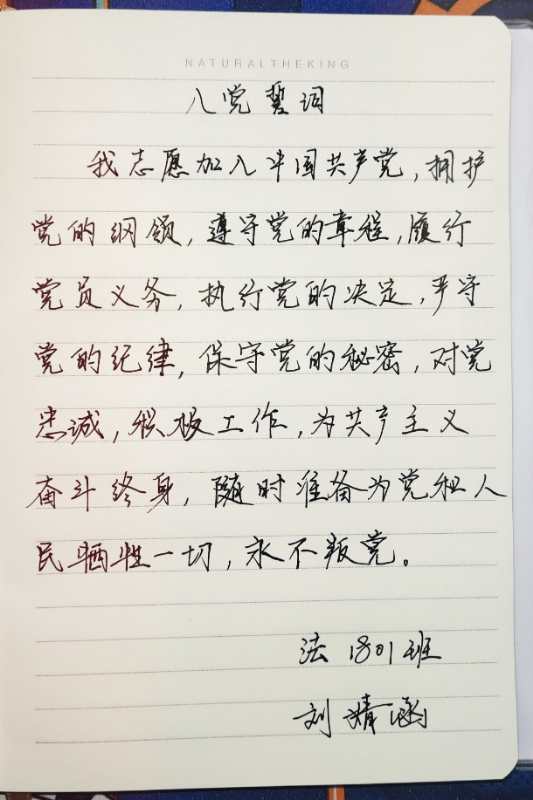 NATURALTHEKING
入党誓词
我志愿加入中国共产党，拥护
党的纲领，遵守党的章程，履行
党员义务，执行党的决定，严守
党的纪律，保守党的秘密，对党
忠诚，积极工作，为共产主义
奋斗终身，随时准备为党和人
民牺牲一切，永不叛党。
法1801班
刘婧涵